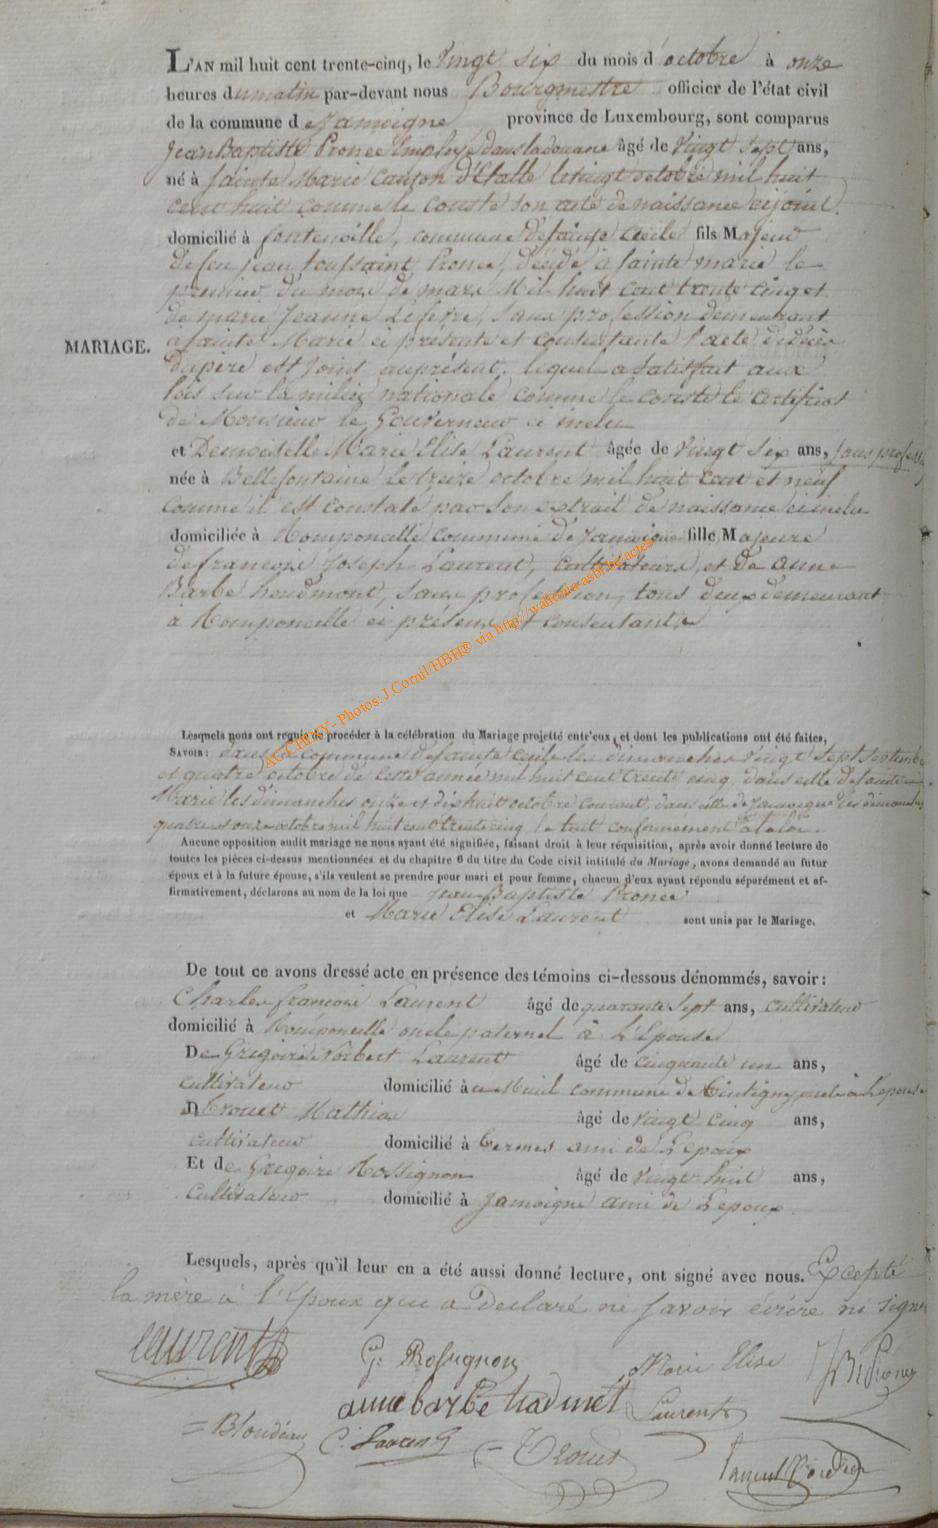 L'AN mil huit cent trente-cinq, le vingt six du mois d'octobre à onze
heures du matin par-devant nous Bourgmestre officier de l'état civil
de la commune de Jamoigne province de Luxembourg, sont comparus
Jean Baptiste Pronce Employé dans la douane âgé de vingt sept ans,
né à Sainte Marie canton d'Etalle le vingt octobre mil huit
cent huit comme le conste son acte de naissance cijoint.
domicilié à fontenoille, commune de Sainte Cecile fils Majeur
de feu jean toussaint Pronce, décédé à Sainte marie le
premier du mois de mars Mil huit cent trente cinq et
de marie Jeanne Lefevre, sans profession demeurant
MARIAGE.
a Sainte Marie ci présente et consentante l'acte de décès
du père est joint au présent, lequel a satisfait aux
lois sur la milice nationale comme le conste le certificat
de Monsieur le Gouverneur ci inclu
et Demoiselle Marie Elise Laurent âgée de vingt six ans, sans profession
née à Bellefontaine le treize octobre mil huit cent et neuf
comme il est constaté par son extrait de naissance ci inclu
domiciliée à Romponcelle commune de Jamoigne fille Majeure
de francois Joseph Laurent, cultivateur, et de anne
Barbe houdmont, sans profession, tous deux demeurant
à Romponcelle ci présens et consentants
AG CHINY - Photos: J.Cornil/HBH® via http://wallonia-asbl.be/actes
Lesquels nous ont requis de procéder à la célébration du Mariage projetté entr'eux, et dont les publications ont été faites,
SAVOIR: dans la commune de Sainte Cecile les dimanches vingt sept septembre
et quatre octobre de cette année mil huit cent trente cinq, dans celle de Sainte
Marie les dimanches onze et dix huit octobre courant, dans celle de Jamoigne les dimanches
quatre et onze octobre mil huit cent trente cinq le tout conformement à la loi.
Aucune opposition audit mariage ne nous ayant été signifiée, faisant droit à leur réquisition, après avoir donné lecture de
toutes les pièces ci-dessus mentionnées et du chapitre 6 du titre du Code civil intitulé du Mariage, avons demandé au futur
époux et à la future épouse, s'ils veulent se prendre pour mari et pour femme, chacun d'eux ayant répondu séparément et af-
firmativement, déclarons au nom de la loi que Jean Baptiste Pronce
et Marie Elise Laurent sont unis par le Mariage.
De tout ce avons dressé acte en présence des témoins ci-dessous dénommés, savoir:
Charles francois Laurent âgé de quarante sept ans, cultivateur
domicilié à Romponcelle oncle paternel à L'Epouse
De Grégoire Norbert Laurent âgé de cinquante un ans,
cultivateur domicilié à au Menil commune de Tintigny oncle à L'epouse
D Trouet Mathias âgé de vingt cinq ans,
cultivateur domicilié à Termes ami de L'epoux
Et de Grégoire Rossignon âgé de vingt huit ans,
cultivateur domicilié à Jamoigne ami de L'epoux.
Lesquels, après qu'il leur en a été aussi donné lecture, ont signé avec nous. Excepté
la mère à l'Epoux qui a Declaré ne savoir écrire ni signer
Laurent G. Rossignon Marie Elise JB Pronce
anne barbe hadmet Laurent
C. Laurent Trouet